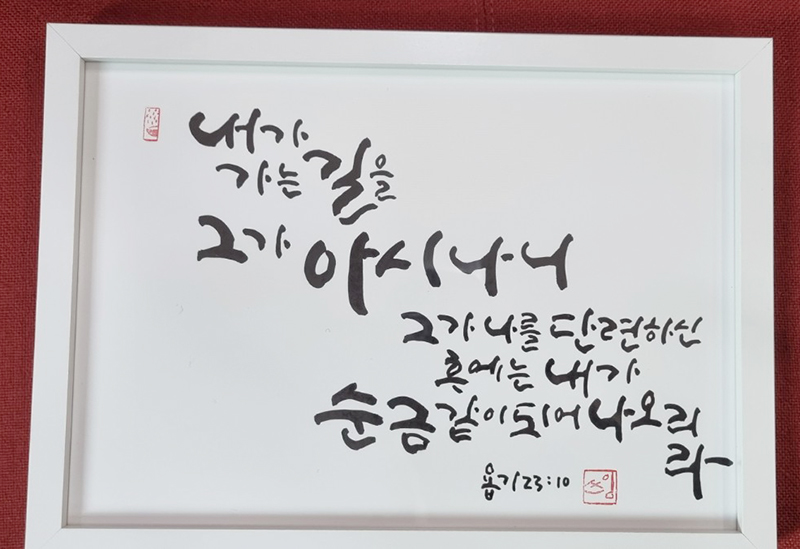 내가
가는 길을
그가 아시나니
그가 나를 단련하신
후에는 내가
순금같이 되어 나오리
라
욥기 23:10